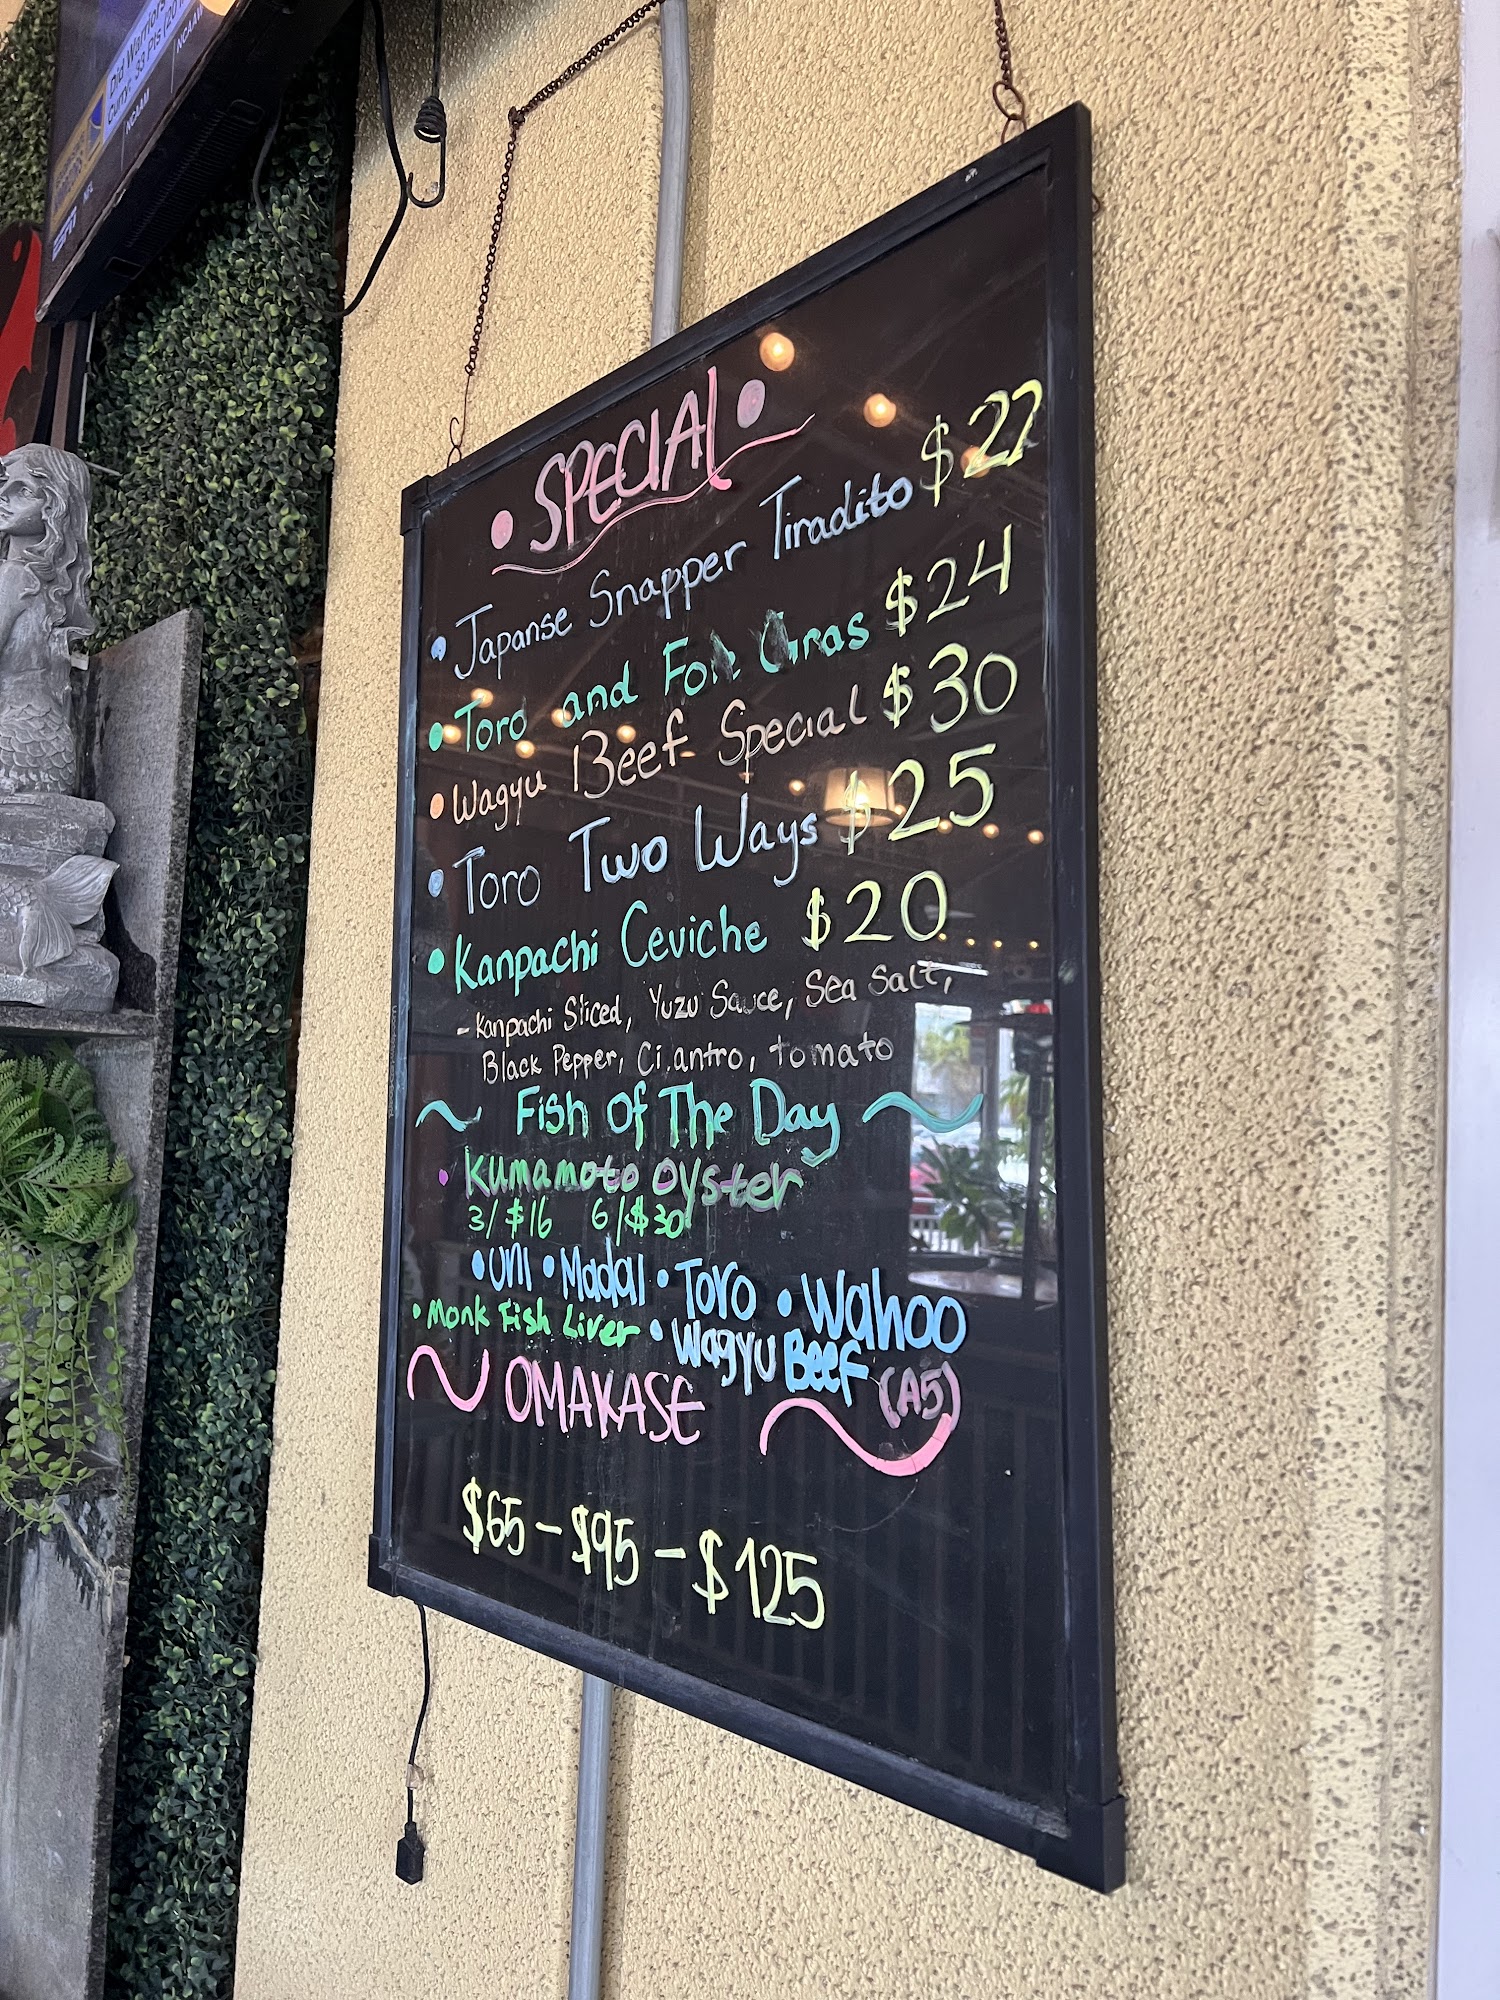 Did Warriors
Curry: 33 Pts (20
NCAAM
NCAAM
NFL
ESPN
• SPECIAL •
• Japanse Snapper Tiradito $27
• Toro and Foie Gras $24
• Wagyu Beef Special $30
• Toro Two Ways $25
• Kanpachi Ceviche $20
- Kanpachi Sliced, Yuzu Sauce, Sea Salt,
Black Pepper, Cilantro, tomato
~ Fish Of The Day ~
• Kumamoto Oyster
3/$16 6/$30
• Uni • Madai • Toro • Wahoo
• Monk Fish Liver • Wagyu Beef (A5)
~ OMAKASE ~
$65 - $95 - $125